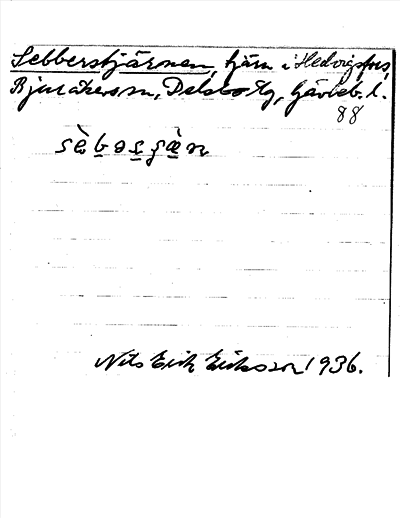 Sebberstjärnen, tjärn i Hedvigsfors,
Bjuråkers sn, Delsbo tg, Gävleb. l.
88
sèbəsʂæ̀n
Nils Erik Eriksson 1936.